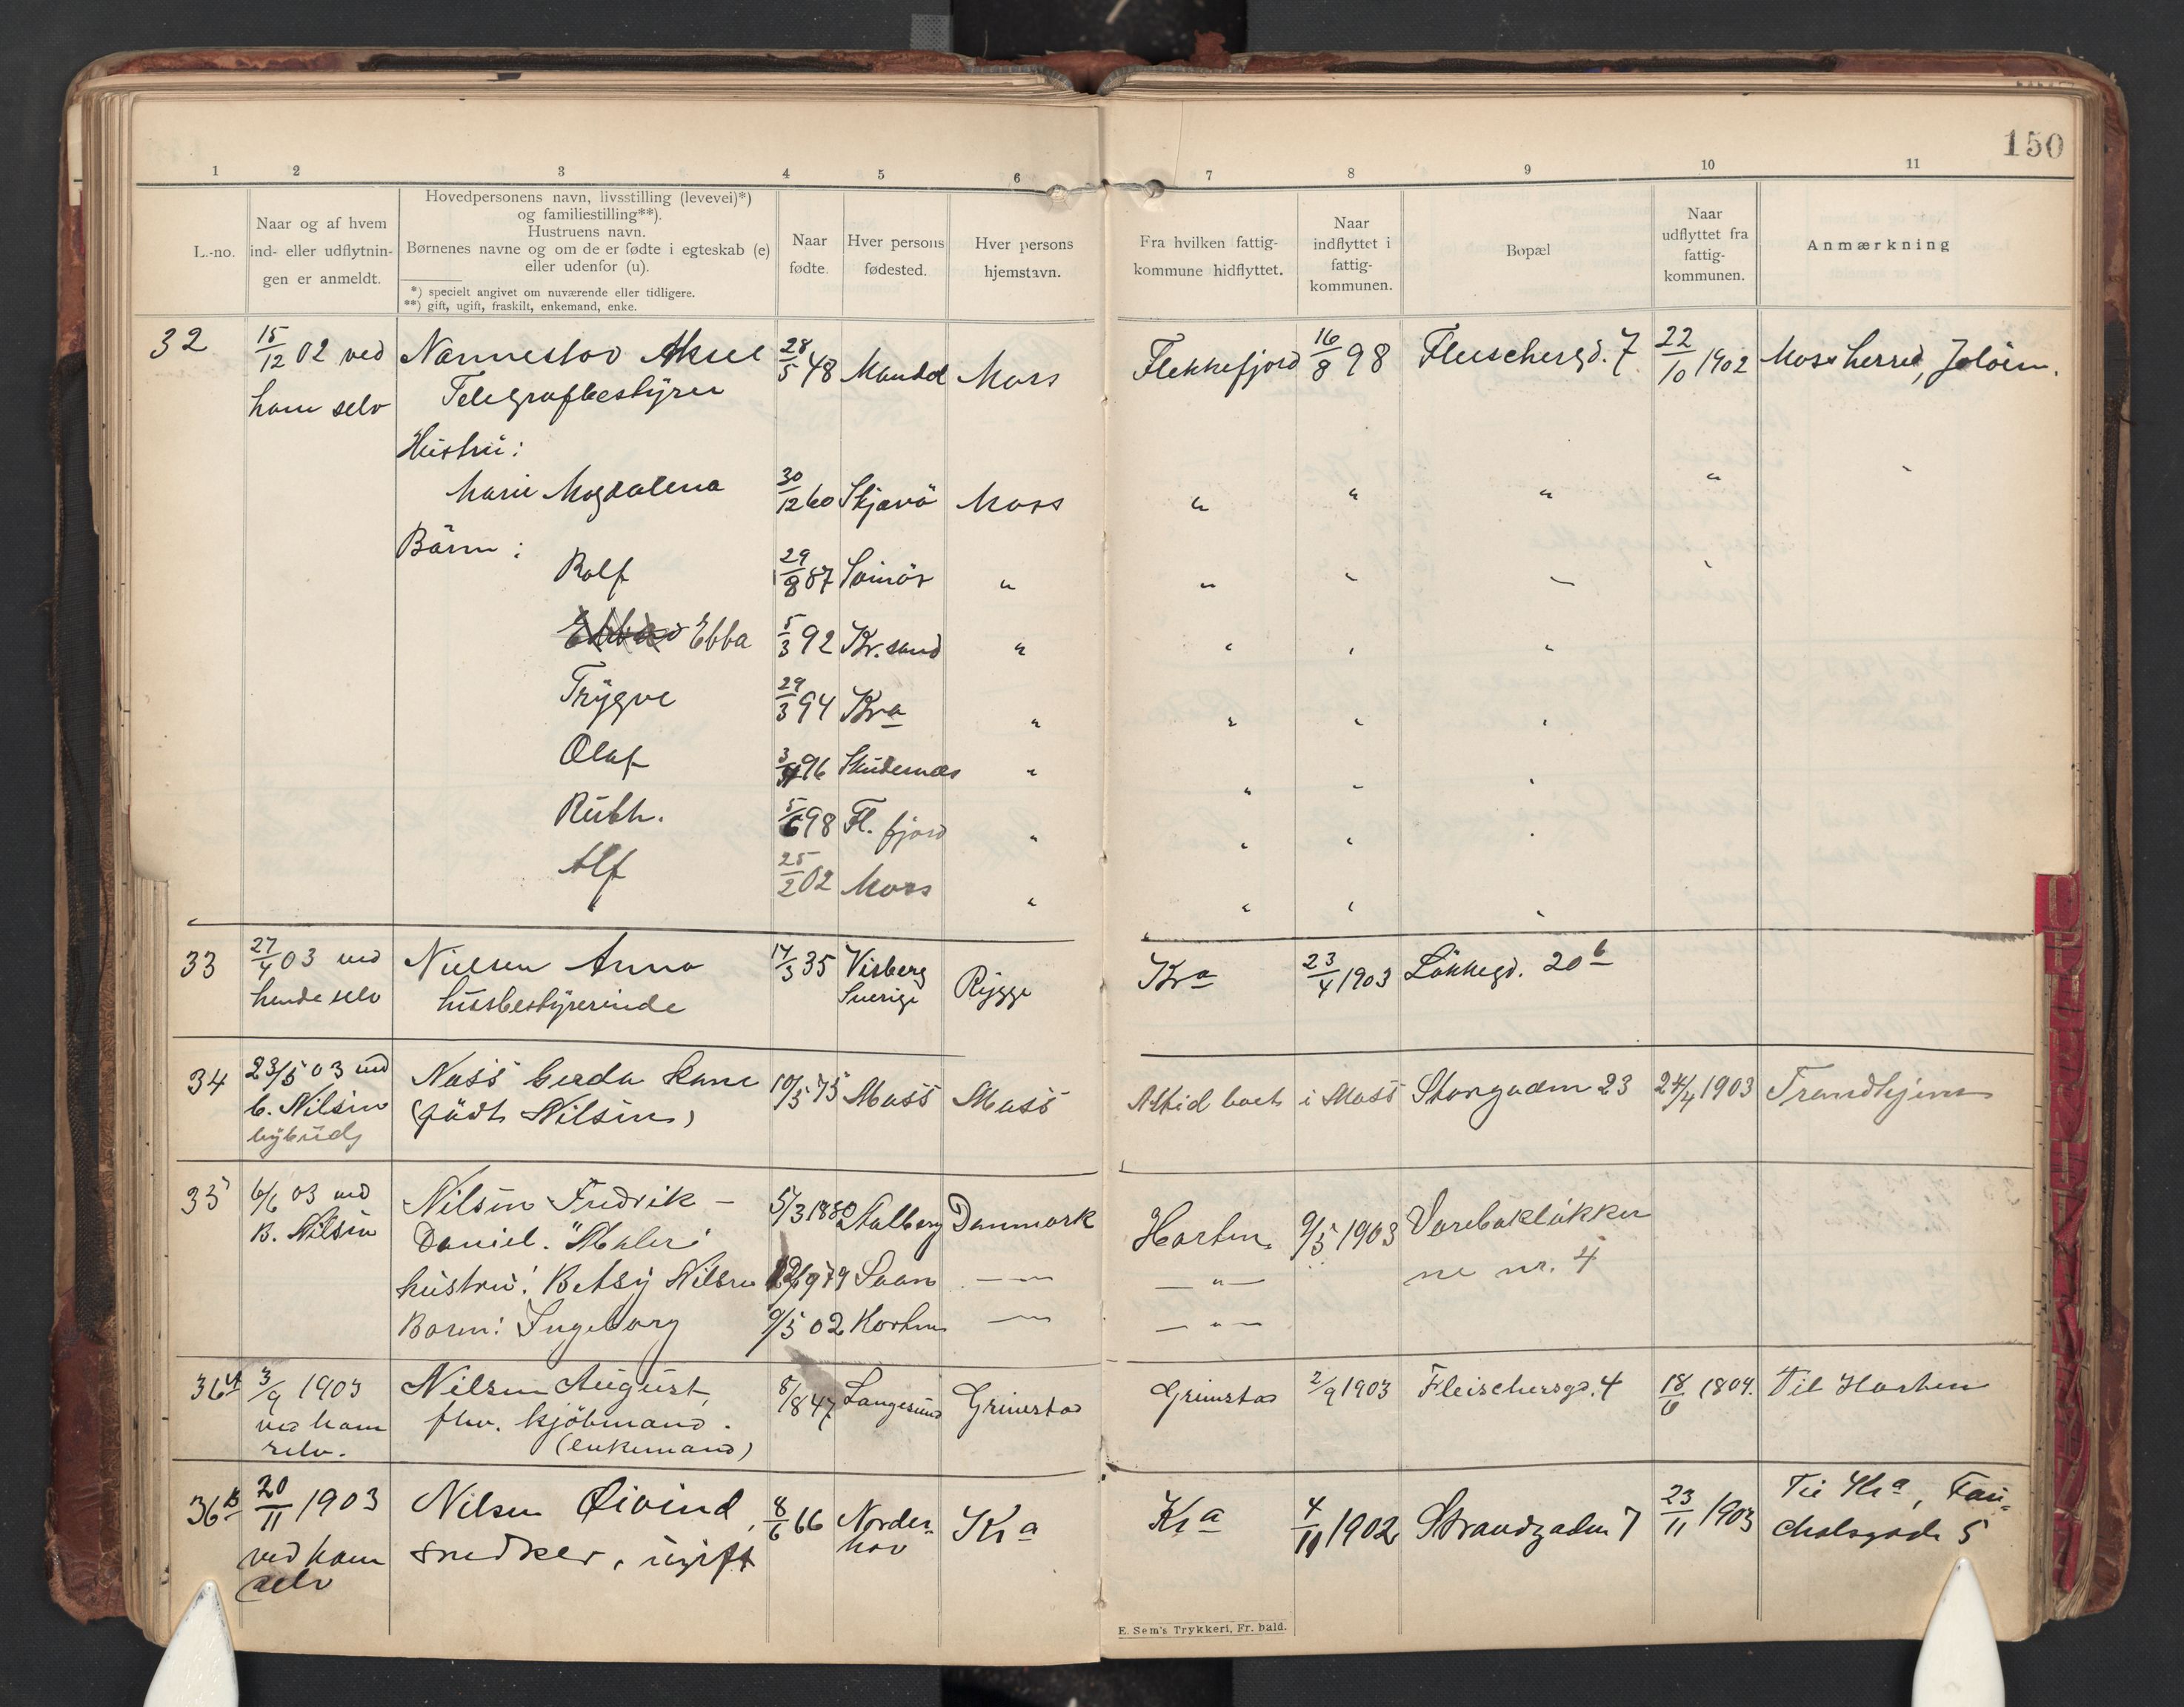 150
1 2 3 4 5 6 7 8 9 10 11
L.-no.
Naar og af hvem
ind- eller udflytnin-
gen er anmeldt.
Hovedpersonens navn, livsstilling (levevei)*)
og familiestilling**).
Hustruens navn.
Børnenes navne og om de er fødte i egteskab (e)
eller udenfor (u).
*) specielt angivet om nuværende eller tidligere.
**) gift, ugift, fraskilt, enkemand, enke.
Naar
fødte.
Hver persons
fødested.
Hver persons
hjemstavn.
Fra hvilken fattig-
kommune hidflyttet.
Naar
indflyttet i
fattig-
kommunen.
Bopæl
Naar
udflyttet fra
fattig-
kommunen.
Anmærkning
32 15/12 02 ved Nannestad Aksel 28/5 48 Mandal Moss Flekkefjord 16/8 98 Fleischersgd. 7 22/10 1902 Moss herred, Jeløen.
ham selv Telegrafbestyrer
Hustru:
Marie Magdalena 30/12 60 Skjærvö Moss " " " " "
Börn:
Rolf 29/8 87 " " " "
Ebba 5/3 92 Kr.sand " " " "
Trygve 29/3 94 Kra " " " "
Olaf 96 Skudernæs " " " "
Ruth. 5/6 98 Fl. fjord " " " "
Alf 25/2 02 Moss " " " "
33 27/4 03 ved Nielsen Anna 17/3 35 Visberg Rygge Kra 23/4 1903 Løkkegd. 20b
hende selv husbestyrerinde Sverige
34 23/5 03 ved Næss Gerda Hane 10/5 75 Moss Moss Altid boet i Moss Storgaden 23 24/4 1903 Trondhjem
C. Nilsen (född Nilsen)
bybud
35 6/6 03 ved Nilsen Fredrik - 5/3 1880 Aalborg Danmark Horten 9/5 1903 Varebakløkke
B. Nilsen Daniel. "Maler" ne nr. 4
hustru: Betsy Nilsen 9 79 — " —
Barn: Ingeborg 9/5 02 Horten — " —
36A 3/9 1903 Nilsen August, 8/8 47 Langesund Grimstad Grimstad 2/9 1903 Fleischersgd. 4 18/6 1804. Til Horten
ved ham fhv. kjöbmand.
selv. (enkemand)
36B 20/11 1903 Nilsen Øivind, 8/6 66 Norder- Kra Kra 4/11 1902 Strandgaden 7 23/11 1903 Til Kra, Fau-
ved ham snedker, ugift hov chalsgade 5
selv
E. Sem's Trykkeri, Fr. hald.